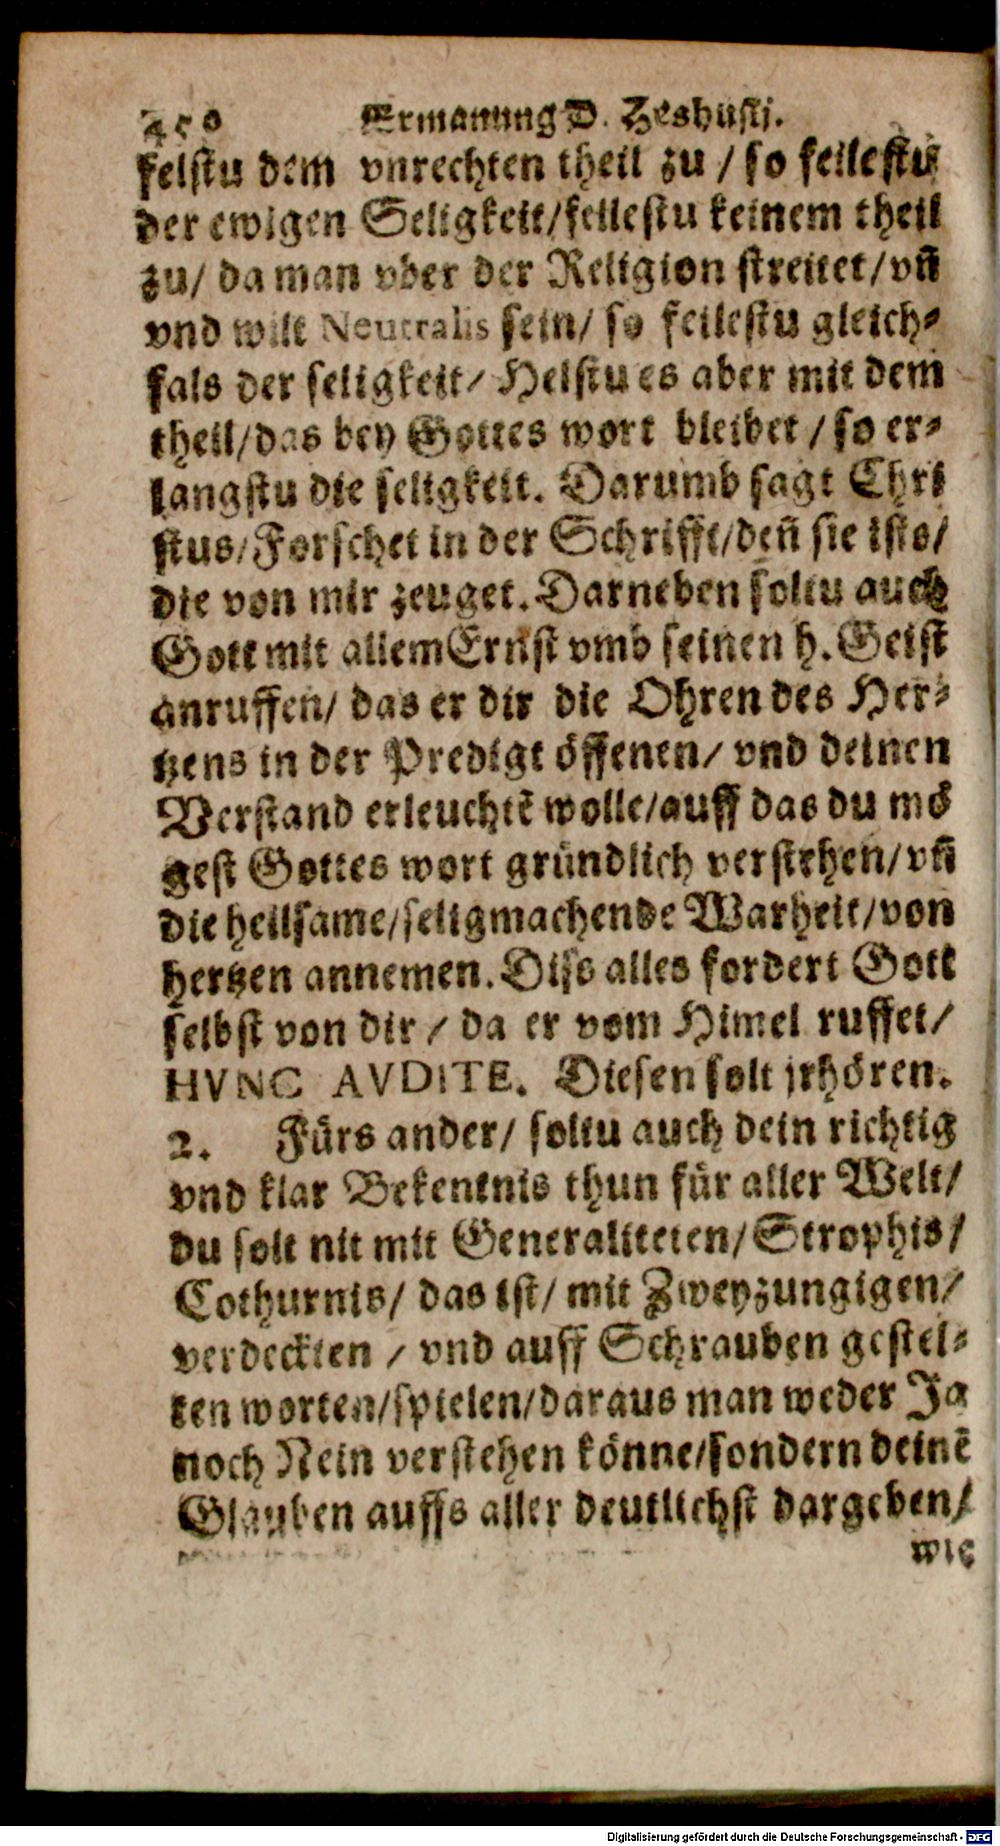 450 Ermanung D. Zeshusij.
felstu dem vnrechten theil zu / so feilestu
der ewigen Seligkeit/feilestu keinem theil
zu/ da man vber der Religion streitet/vn̄
vnd wilt Neutralis sein/ so feilestu gleich⸗
fals der seligkeit/ Helstu es aber mit dem
theil/das bey Gottes wort bleibet / so er⸗
langstu die seligkeit. Darumb sagt Chri
stus/Forschet in der Schrifft/den̄ sie ists/
die von mir zeuget. Darneben soltu auch
Gott mit allem Ernst vmb seinen h. Geist
anruffen/ das er dir die Ohren des Her⸗
tzens in der Predigt öffenen/ vnd deinen
Verstand erleuchtē wolle/auff das du mö
gest Gottes wort gründlich verstehen/vn̄
die heilsame/seligmachende Warheit/von
hertzen annemen. Diss alles fordert Gott
selbst von dir / da er vom Himel ruffet/
HVNC AVDITE. Diesen solt jrhören.
2. Fürs ander/ soltu auch dein richtig
vnd klar Bekentnis thun für aller Welt/
du solt nit mit Generaliteten/Strophis/
Cothurnis/ das ist/ mit Zweyzungigen/
verdeckten / vnd auff Schrauben gestel⸗
ten worten/spielen/daraus man weder Ja
noch Nein verstehen könne/sondern deinē
Glauben auffs aller deutlichst dargeben/
wie
Digitalisierung gefördert durch die Deutsche Forschungsgemeinschaft - DFG